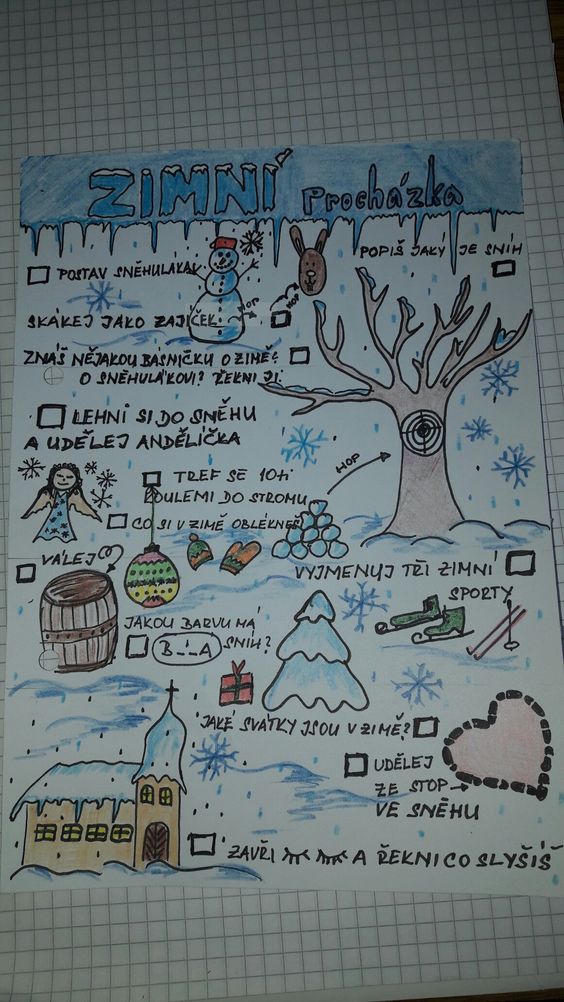 ZIMNÍ Procházka
POSTAV SNĚHULÁKA
POPIŠ JAKÝ JE SNÍH
HOP
HOP
SKÁKEJ JAKO ZAJÍČEK
ZNÁŠ NĚJAKOU BÁSNIČKU O ZIMĚ?
O SNĚHULÁKOVI? ŘEKNI JI
LEHNI SI DO SNĚHU
A UDĚLEJ ANDĚLÍČKA
HOP
TREF SE 10ti
KOULEMI DO STROMU
CO SI V ZIMĚ OBLÉKNEŠ
VÁLEJ
VYJMENUJ TŘI ZIMNÍ
SPORTY
JAKOU BARVU MÁ
SNÍH?
B__A
JAKÉ SVÁTKY JSOU V ZIMĚ?
UDĚLEJ
ZE STOP
VE SNĚHU
ZAVŘI A ŘEKNI CO SLYŠÍŠ